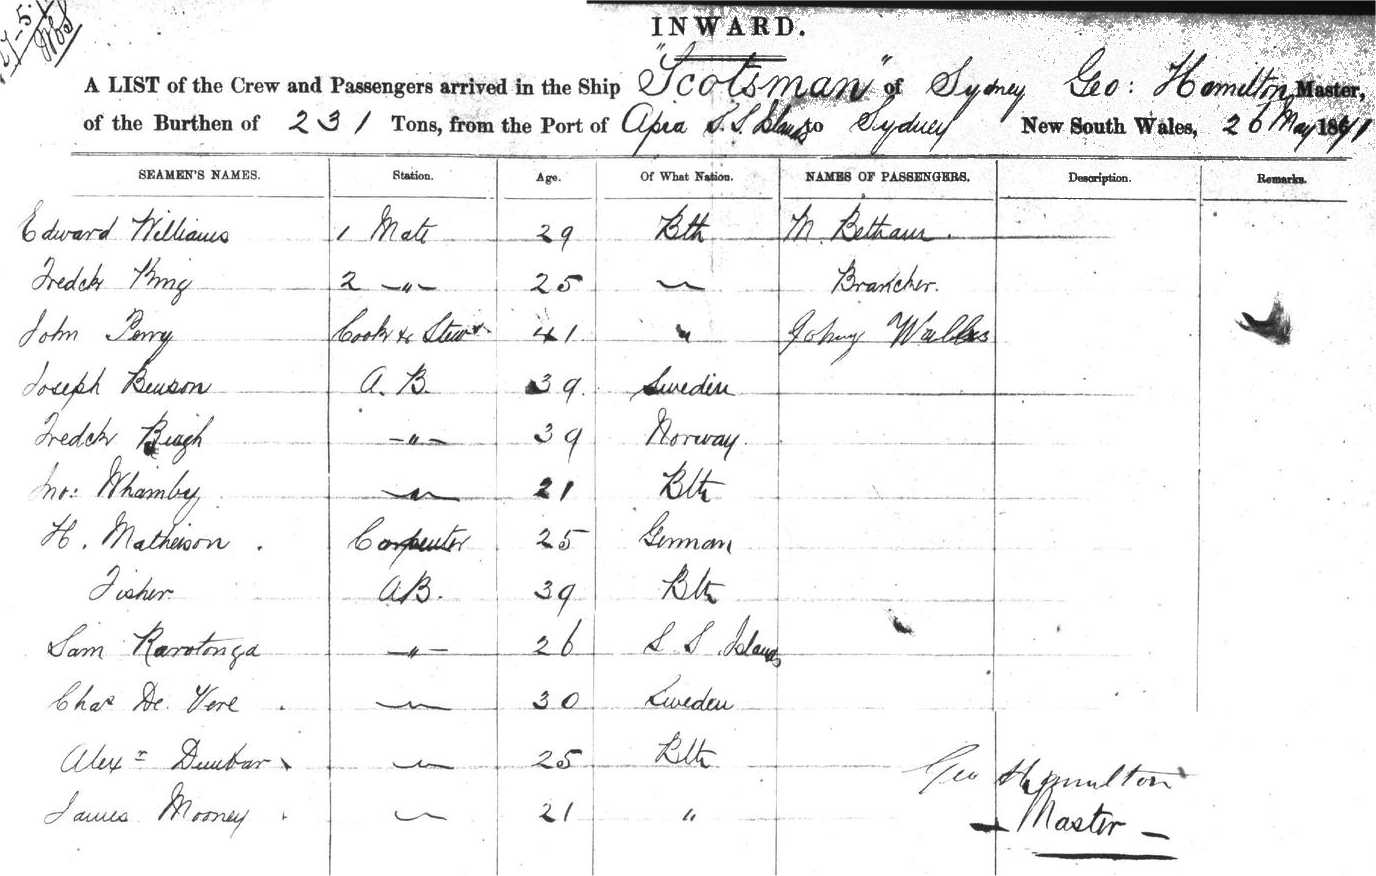 27-5-71
INWARD.
A LIST of the Crew and Passengers arrived in the Ship "Scotsman" of Sydney Geo: Hamilton Master,
of the Burthen of 231 Tons, from the Port of Apia S. S Islands to Sydney New South Wales, 26 May 1871
SEAMEN'S NAMES. Station. Age. Of What Nation. NAMES OF PASSENGERS. Description. Remarks.
Edward Williams 1 Mate 29 Bth M. Betham.
Fredck King 2 -"- 25 " Brancher.
John Perry Cook & Stewd 41 " Johny Wallis
Joseph Benson A. B. 39 Sweden
Fredck -"- 39 Norway.
Jno: Whamby " 21 Bth
H. Matheison. Carpenter 25 German
Fisher. AB. 39 Bth
Sam Rarotonga -"- 26 S S Islands
Chas De Vere. " 30 Sweden
Alexr Dunbar " 25 Bth
James Mooney. " 21 "
Geo Hamilton
- Master -